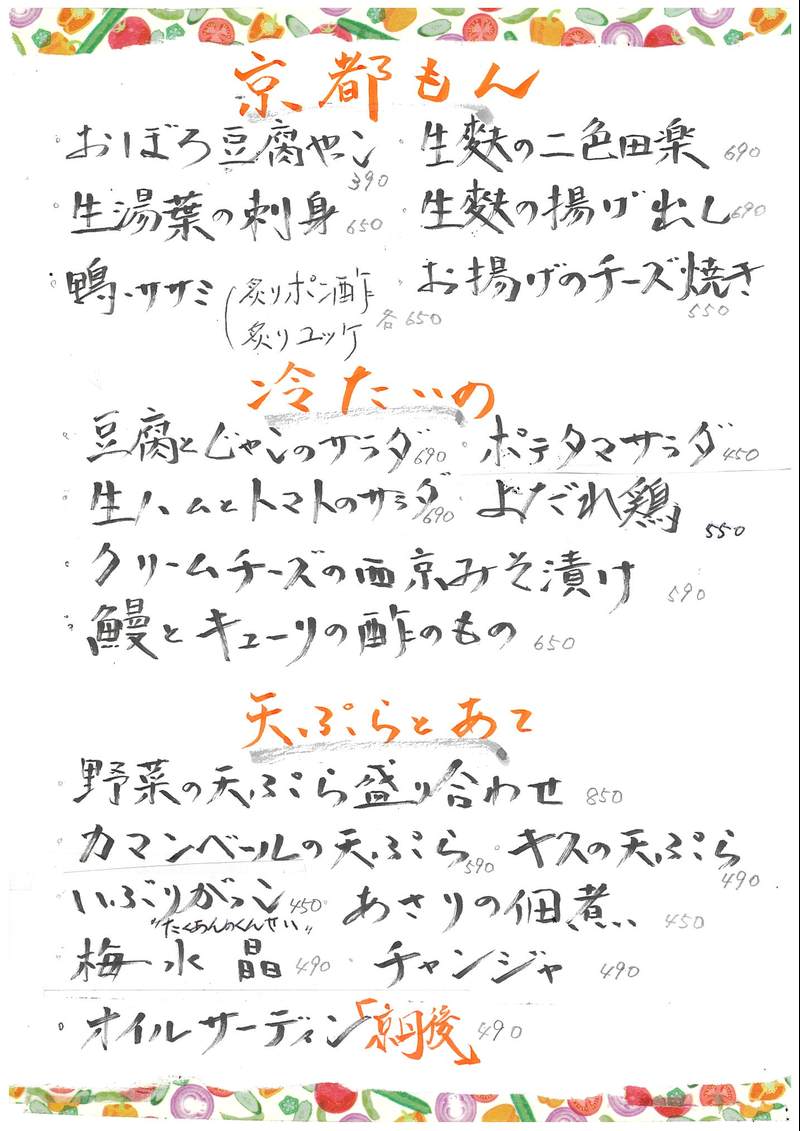 京都もん
おぼろ豆腐やっこ 390
生麩の二色田楽 690
生湯葉の刺身 650
生麩の揚げ出し 690
鴨・ササミ(炙りポン酢
炙りユッケ 各650
お揚げのチーズ焼き 550
冷たいの
豆腐とじゃこのサラダ 690
ポテタマサラダ 450
生ハムとトマトのサラダ 690
よだれ鶏 550
クリームチーズの西京みそ漬け 590
鰻とキューリの酢のもの 650
天ぷらとあて
野菜の天ぷら盛り合わせ 850
カマンベールの天ぷら 590
キスの天ぷら 490
いぶりがっこ 450
"たくあんのくんせい"
あさりの佃煮 450
梅水晶 490
チャンジャ 490
オイルサーディン「京丹後」 490